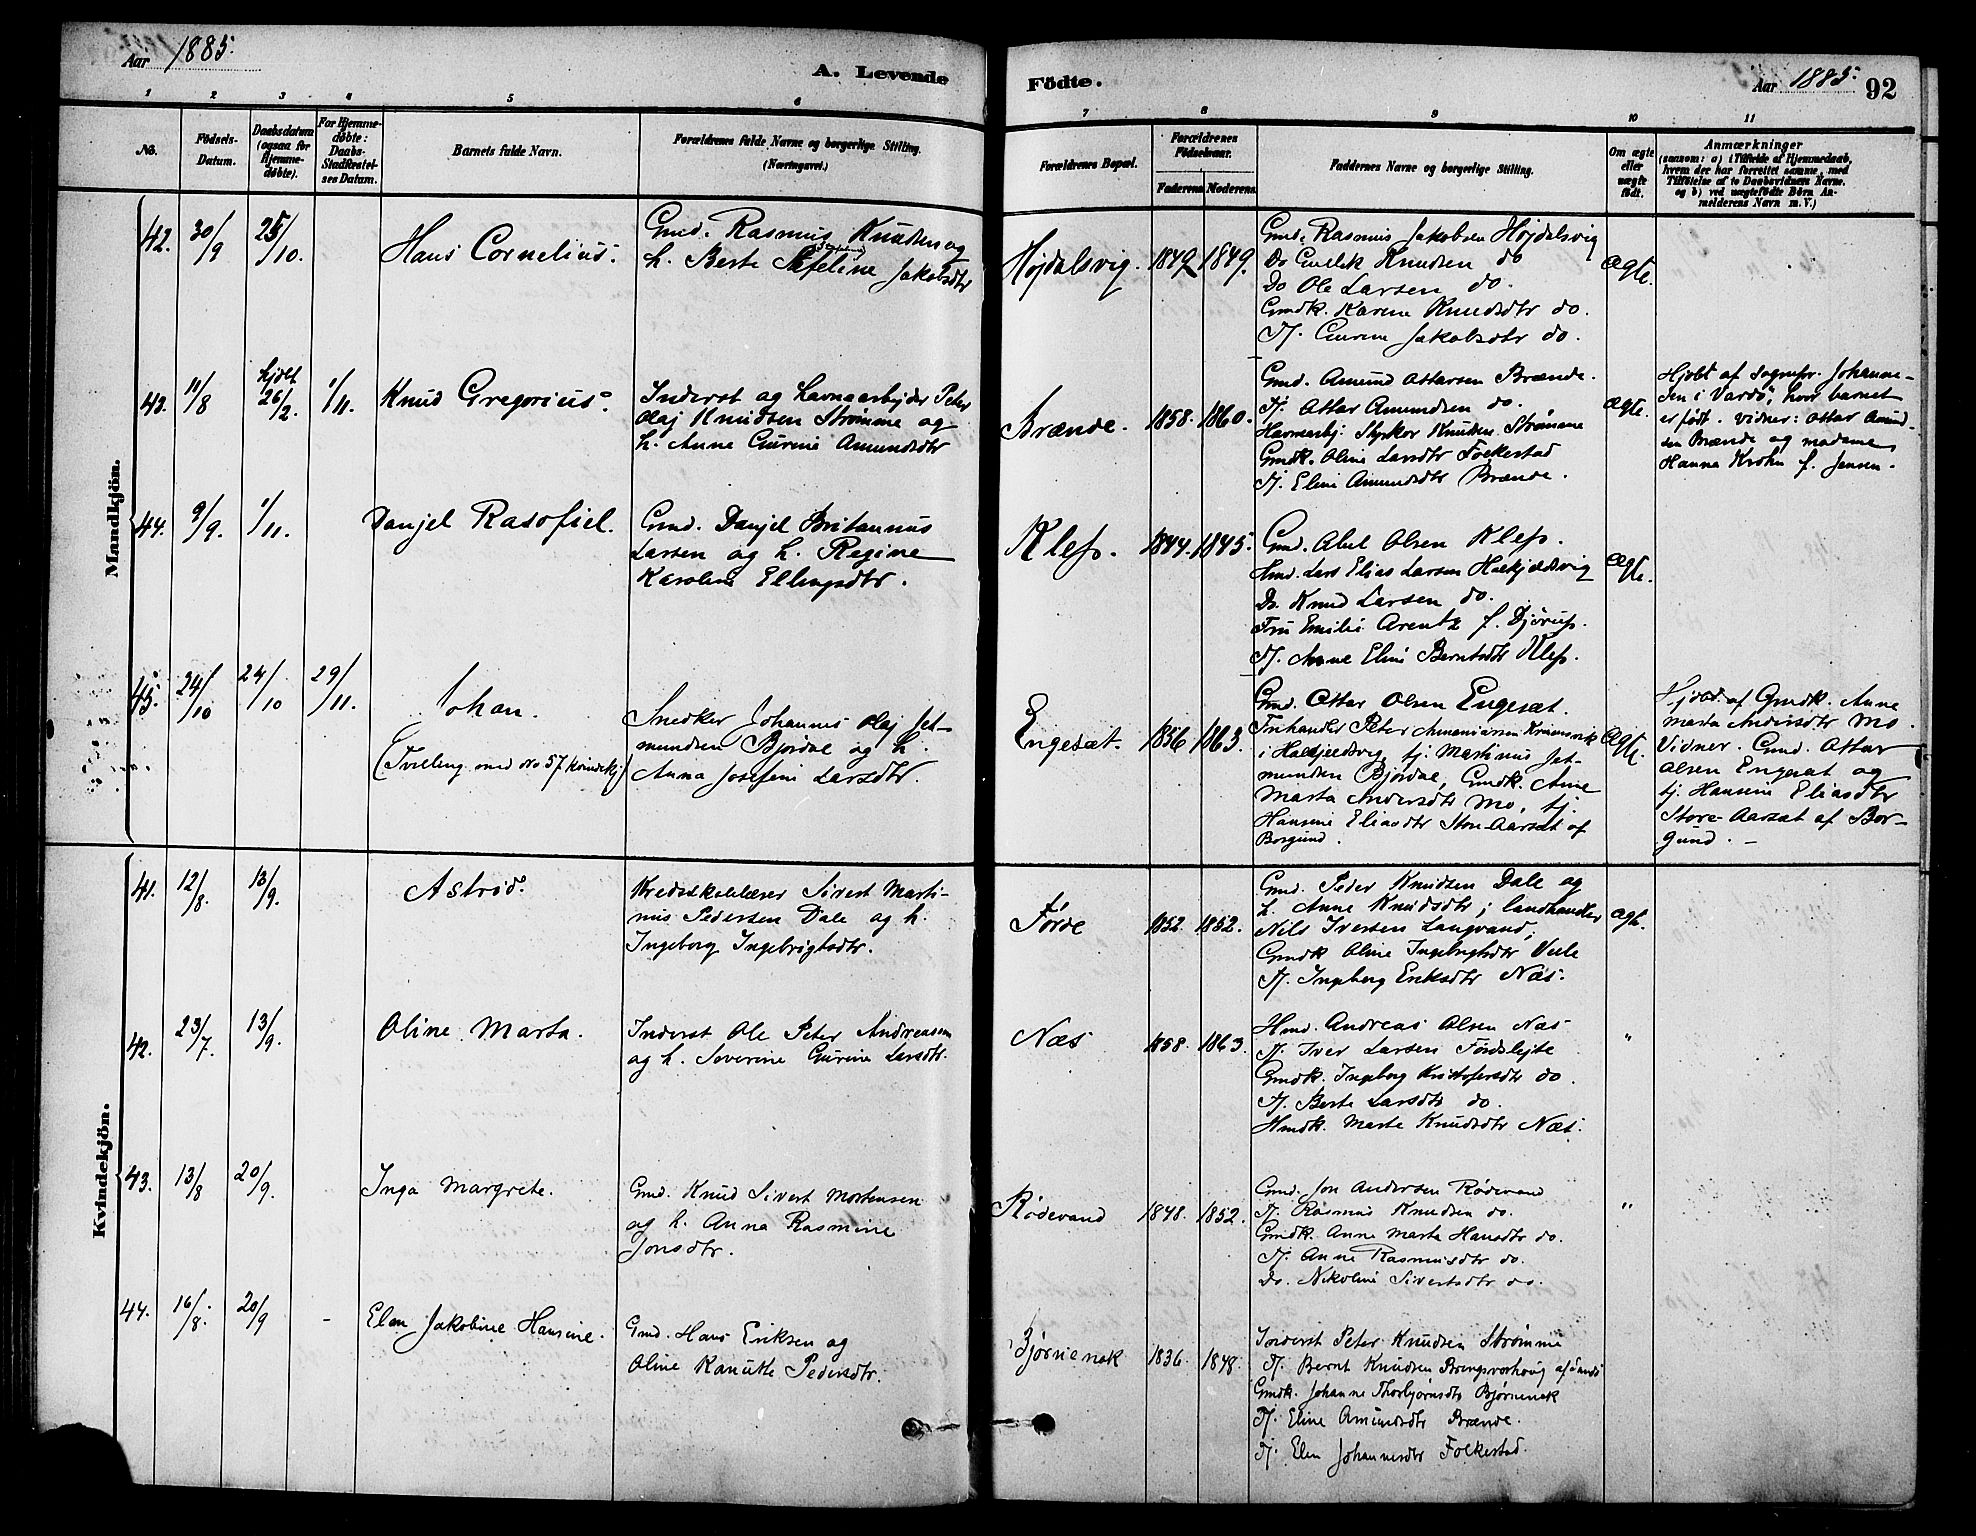 Aar 1885.
A. Levende
Fødte.
Aar 1885.
92
1 2 3 4 5 6
7 8 9 10 11
No.
Fødsels-
Datum.
Daabsdatum
(ogsaa for
Hjemme-
døbte).
For Hjemme-
døbte:
Daabs-
Stadfæstel-
ses Datum.
Barnets fulde Navn.
Forældrenes fulde Navne og borgerlige Stilling.
(Næringsvei.)
Forældrenes Bopæl.
Forældrenes
Fødselsaar.
Faderens. Moderens.
Faddernes Navne og borgerlige Stilling.
Om ægte
eller
uægte
født.
Anmærkninger
(saasom: a) i Tilfælde af Hjemmedaab,
hvem der har forrettet samme, med
Tilføielse af to Daabsvidners Navne,
og b) ved uægtefødte Børn An-
melderens Navn m. V.)
Mandkjön.
42. 30/9 25/10. Hans Cornelius.
Gmd. Rasmus Knudsen og
h. Berte Jakobsdtr
Højdalsvig. 1849 1849.
Gmd. Rasmus Jakobsen Højdalsvig
Do Knudsen do
Do Ole Larsen do.
Gmdk. Karine Knudsdtr do.
Pj. Gurine Jakobsdtr do.
Ægte.
43. 11/8 hjdbt 26/2. 1/11. Knud Gregorius.
Inderst og Havnearbejder Peter
Olaj Knudsen Strømme og
h. Anne Gurine Amundsdtr
Brænde. 1858. 1860.
Gmd. Amund Ottarsen Brænde.
Pj. Ottar Amundsen do.
Havnearbj. Styrkor Knudsen Strømme
Gmdk. Oline Larsdtr Folkestad
Pj. Eline Amundsdtr Brænde.
Ægte.
Hjdbt af Sognepr. Johanne-
sen i Vardø, hvor barnet
er født. Vidner: Ottar Amund-
sen Brænde og madame
Hanna Krohn f. Jensen.
44. 9/9. 1/11. Danjel Rasofiel.
Gmd. Danjel Britannus
Larsen og h. Regine
Karoline Ellingsdtr.
Klep. 1844. 1845.
Gmd. Abel Olsen Klep.
Hmd. Lars Elias Larsen Halkjeldsvig
Do. Knud Larsen do.
Fru Emilie Arentz f. Djørup.
Pj. Anne Eline Berntsdtr Klep.
Ægte.
45. 24/10 24/10 29/11. Johan.
(Tvilling med No 57 Kvindekj)
Snedker Johannes Olaj Jet-
mundsen Bjørdal og h.
Anna Josefine Larsdtr.
Engesæt. 1856. 1863.
Gmd. Ottar Olsen Engesæt.
Peter
i Halkjeldsvig, tj. Martinus Jet-
mundsen Bjørdal, Gmdk. Anne
Marta Andersdtr Mo, tj.
Hansine Eliasdtr Store-Aarsæt af
Borgund.
Ægte.
Hjdbt af Gmdk. Anne
Marta Andersdtr Mo.
Vidner. Gmd. Ottar
Olsen Engesæt og
tj. Hansine Eliasdtr
Store-Aarsæt af Bor-
gund. –
Kvindekjön.
41. 12/8. 13/9. Astrid.
Kredsskolelærer Sivert Marti-
nus Pedersen Dale og h.
Ingeborg Ingebrigtsdtr.
Førde 1852. 1852.
Gmd. Peder Knudsen Dale og
h. Anne Knudsdtr; landhandler
Nils Iversen Langvand,
Gmdk Oline Ingebrigtsdtr Velle
Pj. Ingeborg Eriksdtr Næs.
Ægte.
42. 23/7. 13/9. Oline Marta.
Inderst Ole Peter Andreassen
og h. Severine Gurine Larsdtr.
Næs 1858. 1863.
Hmd. Andreas Olsen Næs
Pj. Iver Larsen Førdslejte
Gmdk. Ingeborg Kristofersdtr do.
Pj. Berte Larsdtr do.
Hmdk. Marte Knudsdtr Næs.
"
43. 13/8 20/9. Inga Margrete.
Gmd. Knud Sivert Mortensen
og h. Anna Rasmine
Jonsdtr.
Rødevand 1848. 1852.
Gmd. Jon Andersen Rødevand
Pj. Rasmus Knudsen do.
Gmdk. Anne Marta Hansdtr do.
Pj. Anne Rasmusdtr do.
Do. Nikoline Sivertsdtr do.
"
44. 16/8. 20/9 - Elen Jakobine Hansine.
Gmd. Hans Eriksen og
Oline Kanutte Pedersdtr.
Bjørnenak 1836. 1848.
Inderst Peter Knudsen Strømme
Pj. Bernt Knudsen
Gmdk. Johanne Thorbjørnsdtr Bjørnenak
Pj. Eline Amundsdtr Brænde.
Pj. Elen Johannesdtr Folkestad.